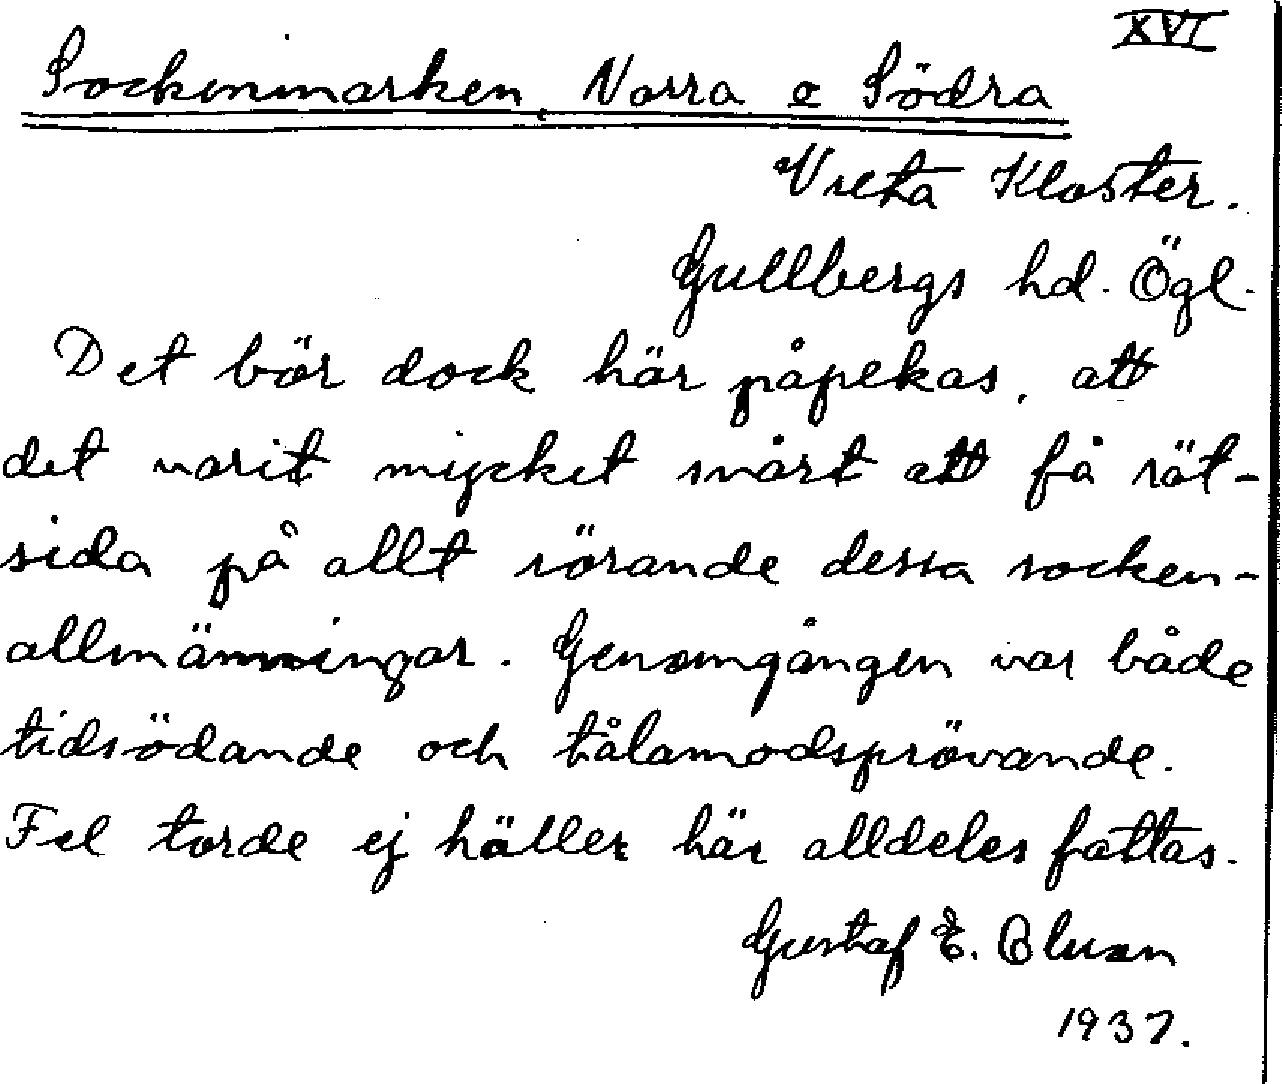 XVI
Sockenmarken, Norra o Södra
Vreta Kloster.
Gullbergs hd. Ögl.
Det bör dock här påpekas, att
det varit mycket svårt att få rät-
sida på allt rörande dessa socken-
allmänningar. Genomgången var både
tidsödande och tålamodsprövande.
Fel torde ej häller här alldeles fattas.
Gustaf E.
1937.